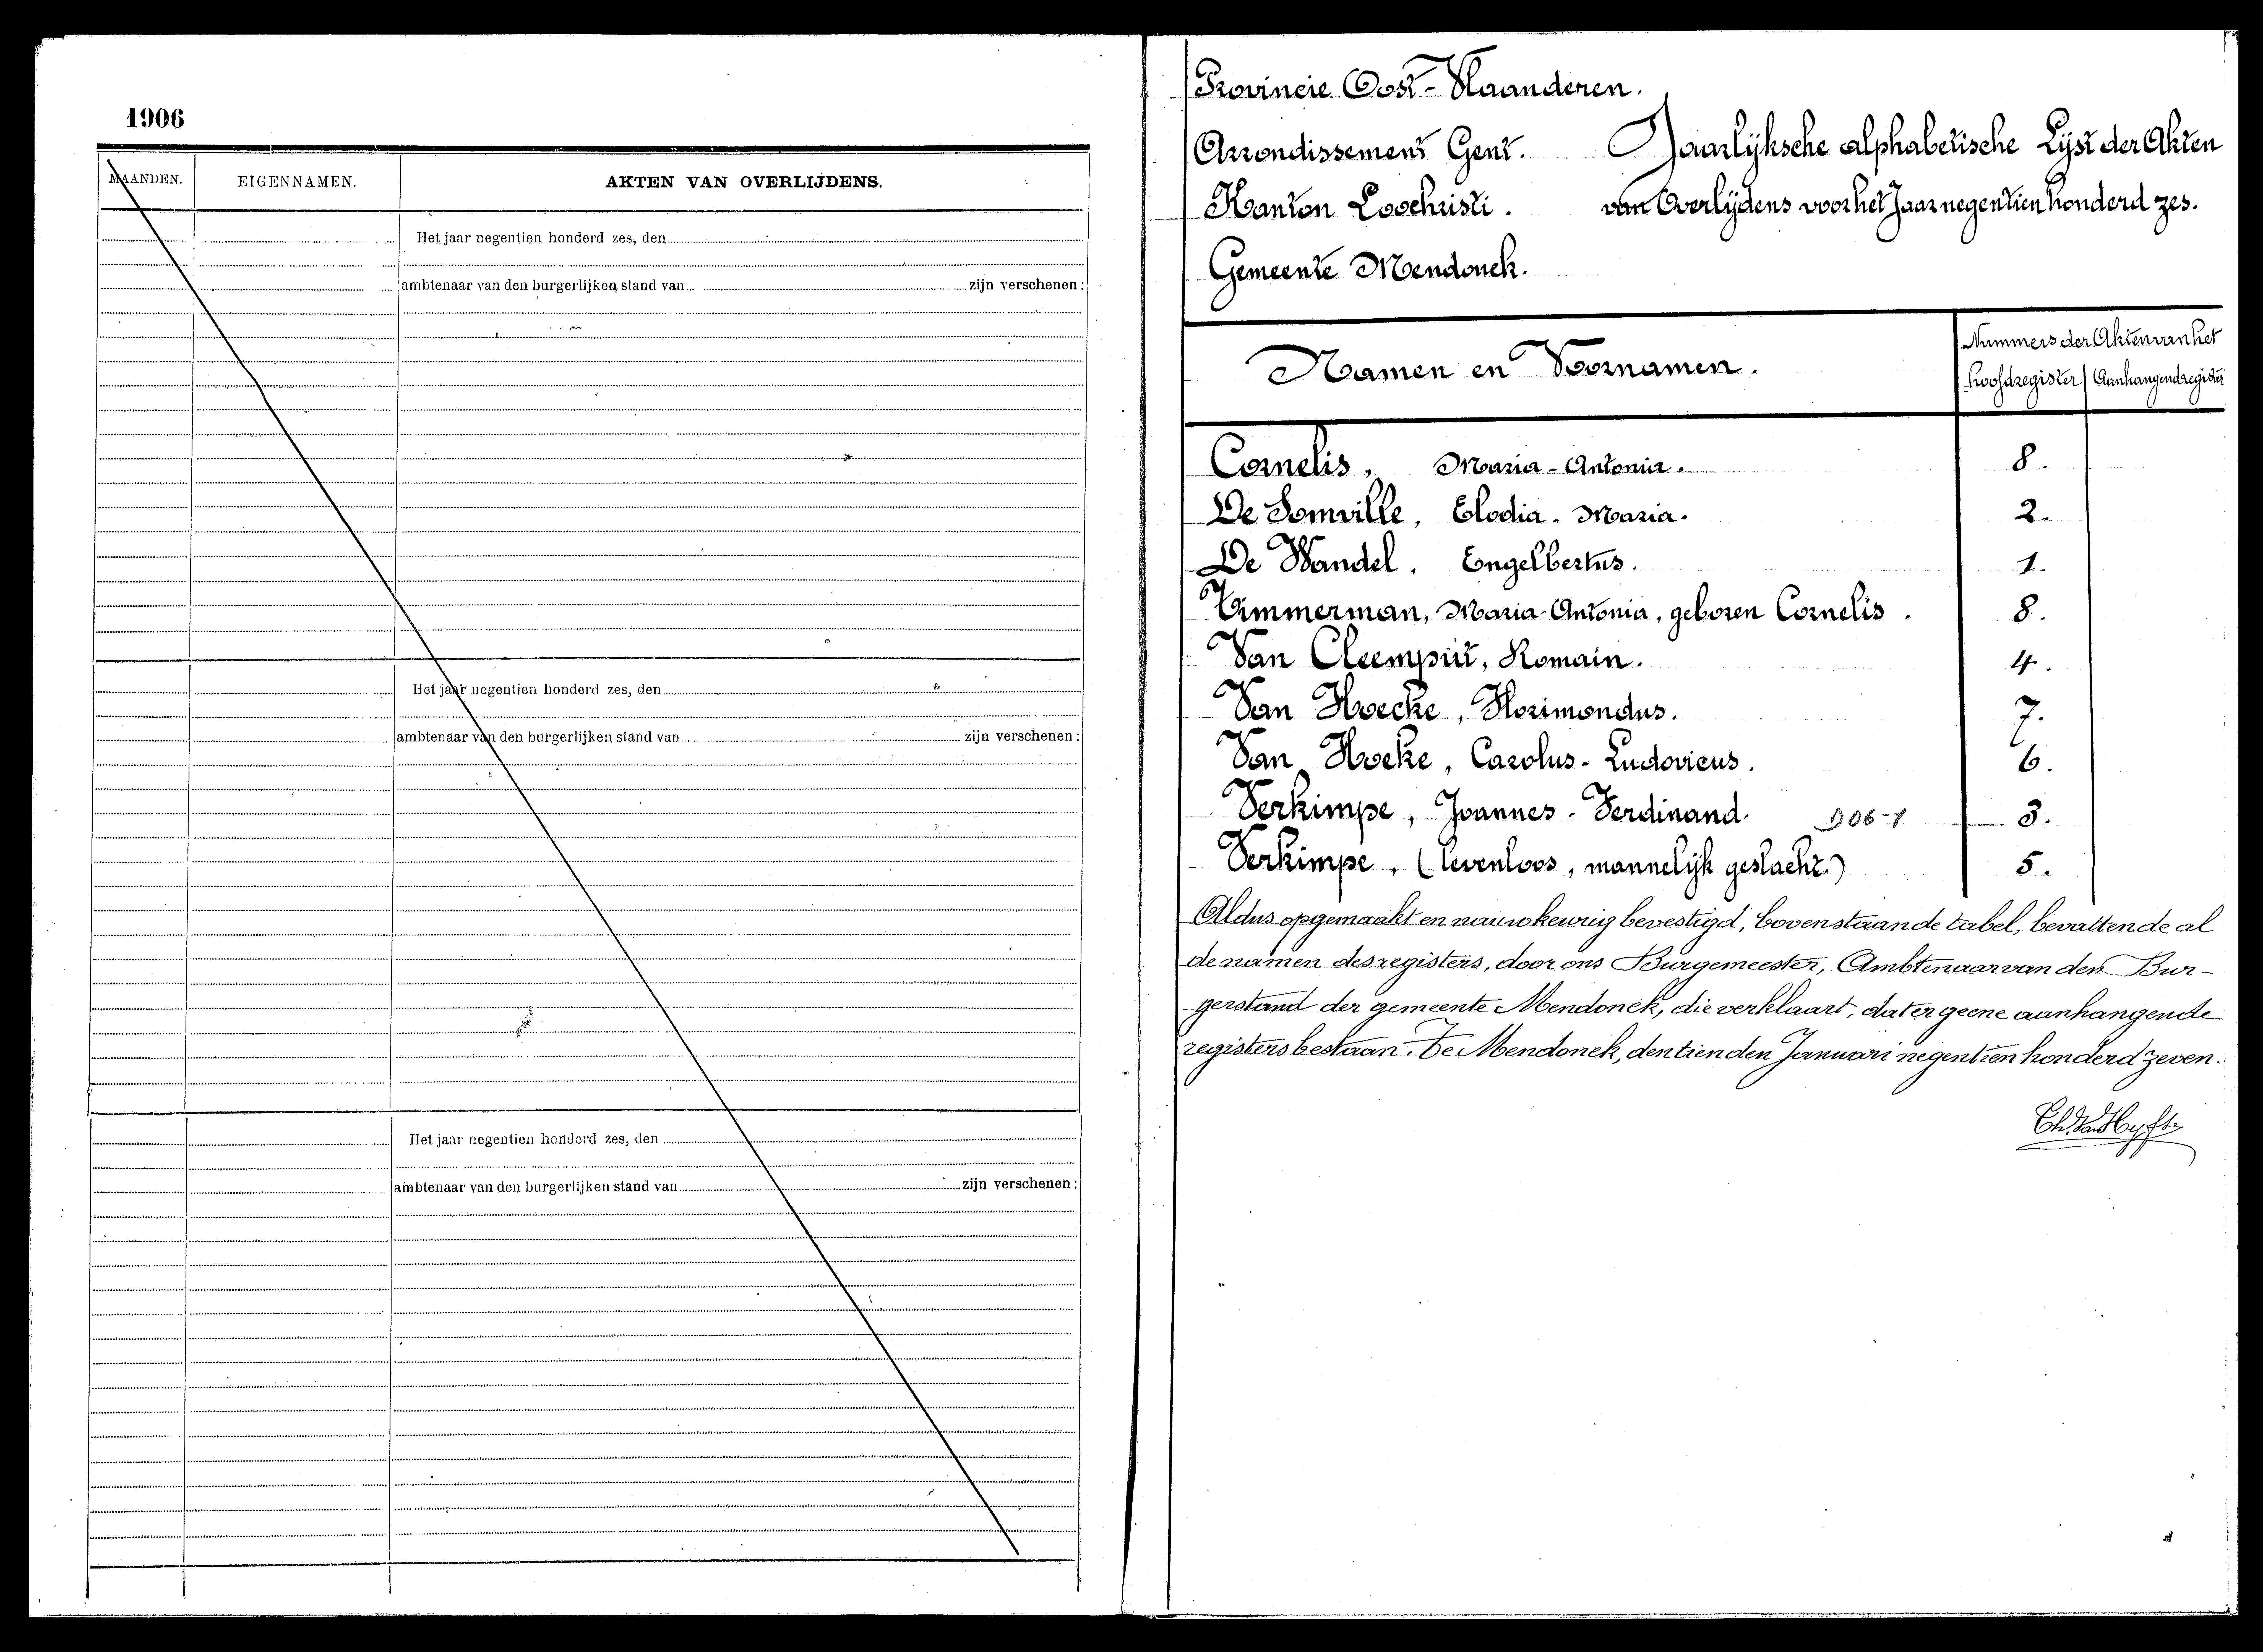 1906
MAANDEN. EIGENNAMEN. AKTEN VAN OVERLIJDENS.
Het jaar negentien honderd zes, den
ambtenaar van den burgerlijken stand van zijn verschenen:
Het jaar negentien honderd zes, den
ambtenaar van den burgerlijken stand van zijn verschenen:
Het jaar negentien honderd zes, den
ambtenaar van den burgerlijken stand van zijn verschenen:
Provincie Oost-Vlaanderen.
Arrondissement Gent. Jaarlijksche alphabetische Lijst der Akten
Kanton Loochristi. van Overlijdens voor het Jaar negentien honderd zes.
Gemeente Mendonck.
Namen en Voornamen. Nummers der Akten van het
Hoofdregister Aanhangendregister
Cornelis, Maria-Antonia. 8.
De Somville, Elodia-Maria. 2.
De Wandel, Engelbertus. 1.
Timmerman, Maria-Antonia, geboren Cornelis. 8.
Van Cleemput, Romain. 4.
Van Hoecke, Florimondus. 7.
Van Hoeke, Carolus-Ludovicus. 6.
Verkimpe, Joannes-Ferdinand. 906-1 3.
Verkimpe, (levenloos, mannelijk geslacht.) 5.
Aldus opgemaakt en nauwkeurig bevestigd, bovenstaande tabel, bevattende al
de namen des registers, door ons Burgemeester, Ambtenaar van den Bur-
gerstand der gemeente Mendonck, die verklaart, dat er geene aanhangende
registers bestaan. Te Mendonck, den tienden Januari negentien honderd zeven.